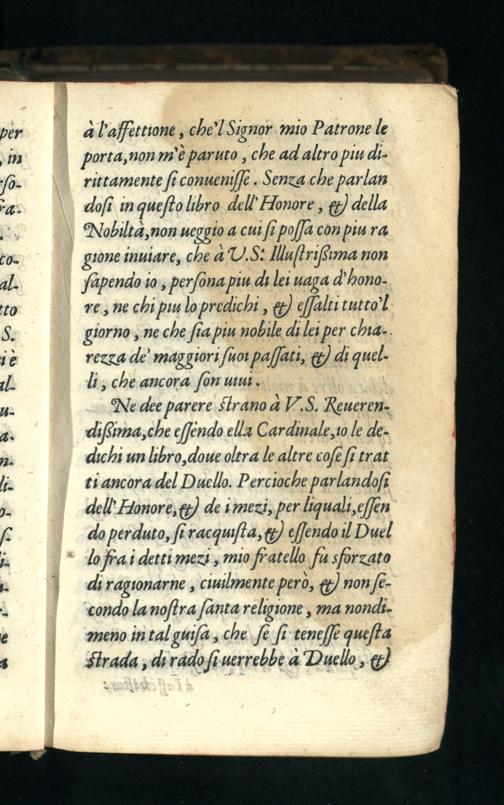 à l'affettione, che'l Signor mio Patrone le
porta, non m'è paruto, che ad altro piu di-
rittamente si conuenisse. Senza che parlan
dosi in questo libro dell'Honore, & della
Nobiltà, non ueggio a cui si possa con piu ra
gione inuiare, che à V.S. Illustrißima non
sapendo io, persona piu di lei uaga d'hono-
re, ne chi piu lo predichi, & essalti tutto'l
giorno, ne che sia piu nobile di lei per chia-
rezza de' maggiori suoi passati, & di quel-
li, che ancora son uiui.
Ne dee parere strano à V.S. Reueren-
dißima, che essendo ella Cardinale, io le de-
dichi un libro, doue oltra le altre cose si trat
ti ancora del Duello. Percioche parlandosi
dell'Honore, & de i mezi, per li quali, essen
do perduto, si racquista, & essendo il Duel
lo fra i detti mezi, mio fratello fu sforzato
di ragionarne, ciuilmente però, & non se-
condo la nostra santa religione, ma nondi-
meno in tal guisa, che se si tenesse questa
strada, di rado si uerrebbe à Duello, &